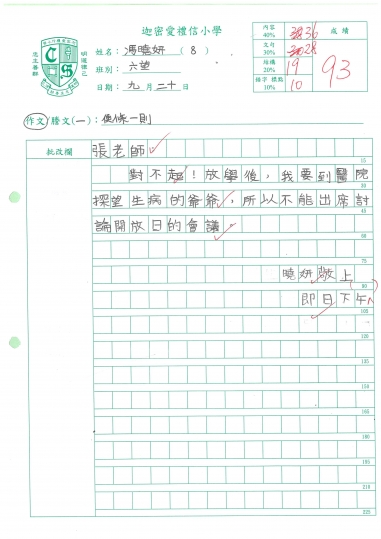 迦密愛禮信小學
姓名：馮曉妍（8）
班別：六望
日期：九月二十日
內容 40% 36
文句 30% 28
結構 20% 19
錯字 標點 10% 10
成績
93
作文/謄文(一)：便條一則
批改欄
張老師
15
對不起！放學後，我要到醫院
30
探望生病的爺爺，所以不能出席討
45
論開放日的會議。
60
75
曉妍敬上
90
即日下午
105
120
135
150
165
180
195
210
225